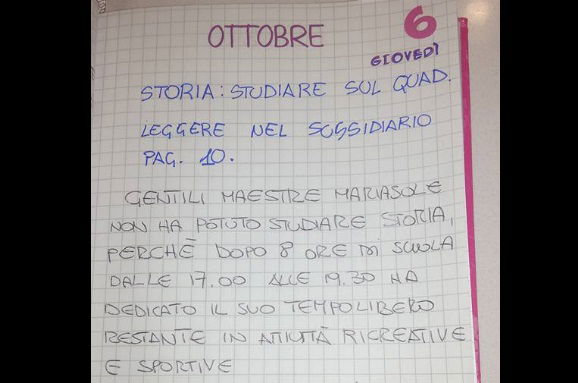 OTTOBRE
6
GIOVEDÌ
STORIA: STUDIARE SUL QUAD.
LEGGERE NEL SUSSIDIARIO
PAG. 10.
GENTILI MAESTRE MARIASOLE
NON HA POTUTO STUDIARE STORIA,
PERCHÉ DOPO 8 ORE DI SCUOLA
DALLE 17.00 ALLE 19.30 HA
DEDICATO IL SUO TEMPO LIBERO
RESTANTE IN ATTIVITÀ RICREATIVE
E SPORTIVE